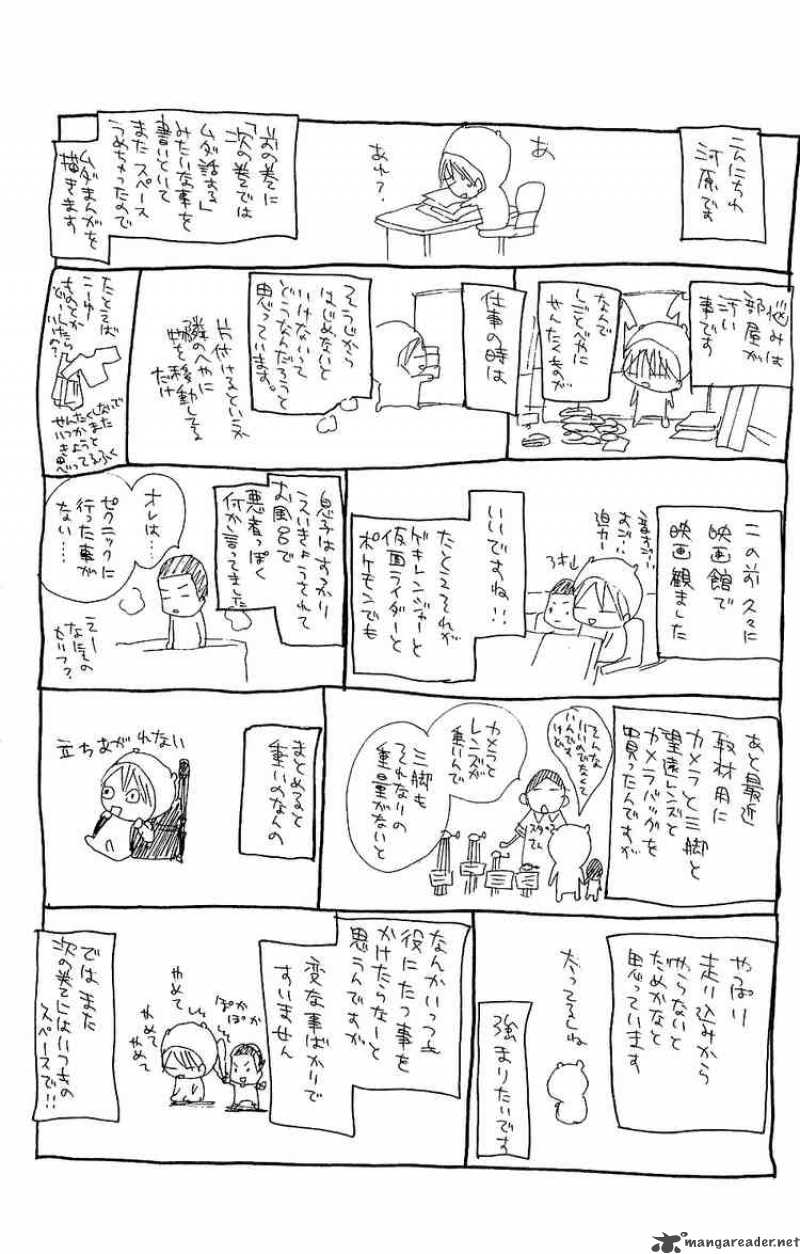 こんにちわ
河原です
あ
あれ?
前の巻に
「次の巻では
ムダ話ある」
みたいな事を
書いといて
またスペース
うめちゃったので
ムダまんがを
描きます
悩みは
部屋が
汚い
事です
なんで
しごとべやに
せんたくものが
仕事の時は
そうじから
はじめないと
いけないって
どうなんだろうと
思っています。
片付けるというか
隣のへやに
物を移動してる
だけ
たとえば
こーゆー
ものとか
どーしたら
いーの?
この前久々に
映画館で
映画観ました
音が…
おが…
迫力…
いいですね!!
たとえそれが
ゲキレンジャーと
仮面ライダーと
ポケモンでも
息子はすっかり
えいきょうされて
お風呂で
悪者っぽく
何か言ってました
オレは…
ピクニックに
行った事が
ない…
えー
なにその
せりふ?
あと最近
取材用に
カメラと三脚と
望遠レンズと
カメラバッグを
買ったんですが
そんな
いいのでなくて
いいんです
けど
カメラと
レンズが
重いんで
三脚も
それなりの
重量がないと
スタッフ
さん
まとめると
重いのなんの
立ちあがれない
やっぱり
走り込みから
やらないと
だめかなと
思っています
太ってるしね
強まりたいです
なんかいつも
役にたつ事を
かけたらなーと
思うんですが
変な事ばかりで
すいません
ぽかぽか
やめて
やめて
やめて
ではまた
次の巻にはいつもの
スペースで!!
www.mangareader.net